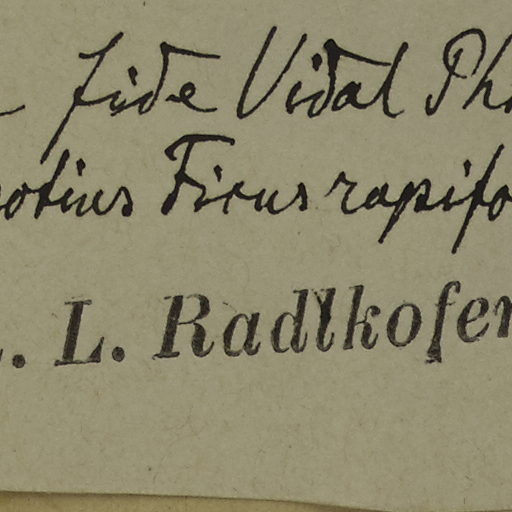 fide Vidal Ph
potius Ficus rapifo
. L. Radlkofer